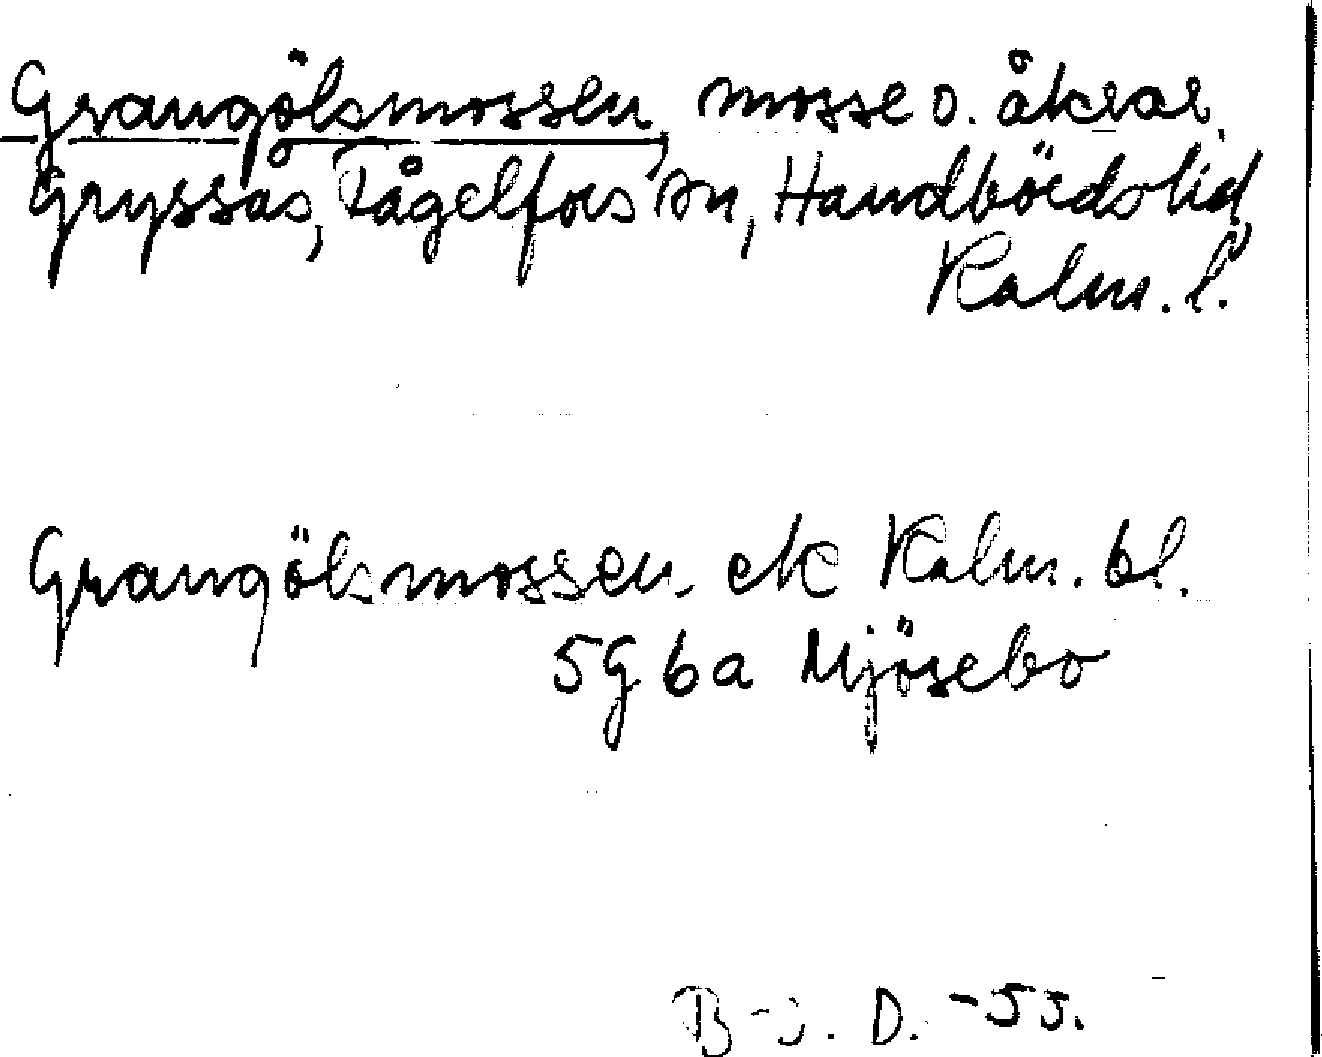 Grangölsmossen, mosse o. åkrar,
Gryssås, Fågelfors sn, Handbörds hd,
Kalm. l.
Grangölsmossen. ek Kalm. bl.
5g6a Mjösebo
B-i. D. -55.